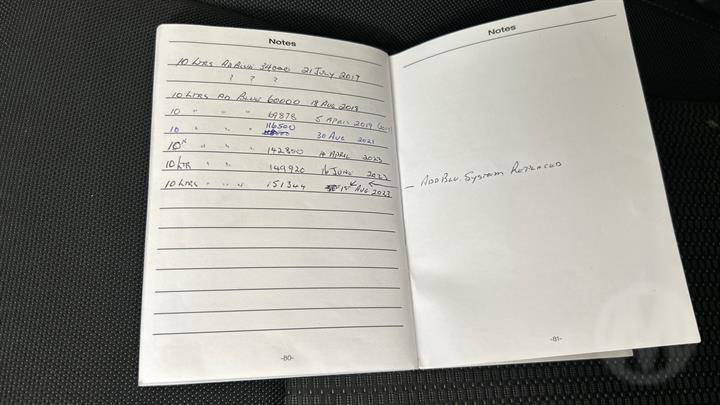 Notes
10 LTRS ADBLUE 34000 21 JULY 2017
? ? ?
10 LTRS AD BLUE 60000 18 AUG 2018
10 " " " 69878 5 APRIL 2019
10 " " " 116500 30 AUG 2021
10 " " " 142800 APRIL 2023
10 LTR " " 149920 16 JUNE 2023
10 LTRS " " " 151344 15T AUG 2023
-80-
Notes
— ADDBLU SYSTEM REPLACED
-81-